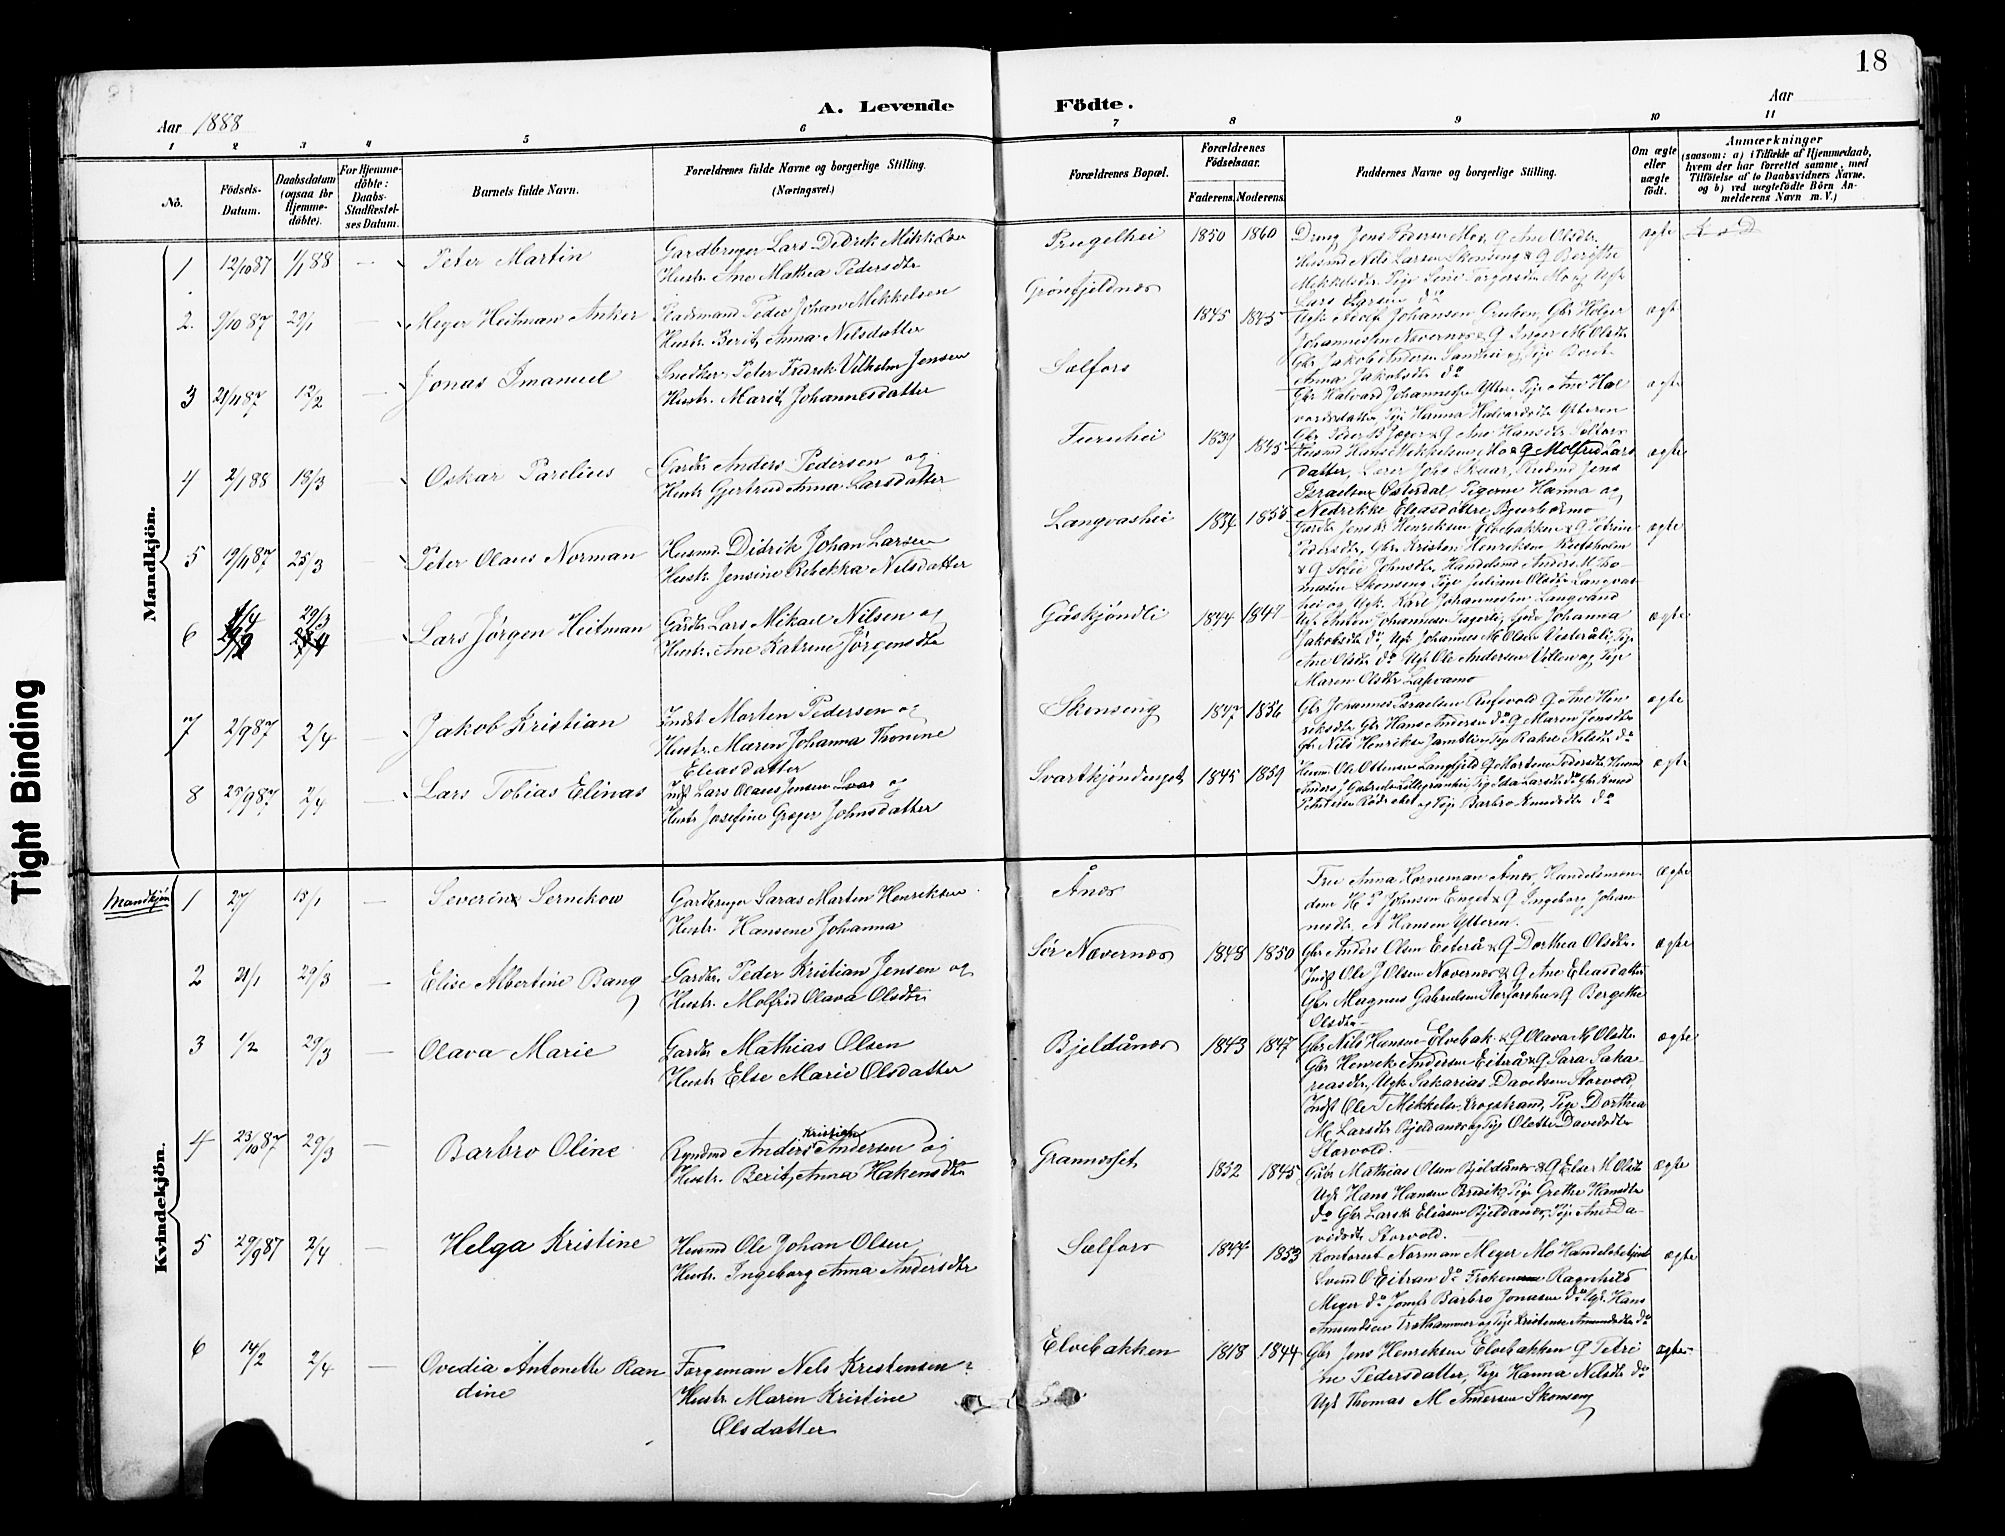 18
A. Levende Födte.
Aar 1888
Aar
1 2 3 4 5 6 7 8 9 10 11
No.
Födsels-Datum.
Daabsdatum (ogsaa for Hjemmedöbte).
For Hjemmedöbte: Daabs-Stadfæstelses Datum.
Barnets fulde Navn.
Forældrenes fulde Navne og borgerlige Stilling.
(Næringsvei.)
Forældrenes Bopæl.
Forældrenes Födselsaar.
Faderens. Moderens.
Faddernes Navne og borgerlige Stilling.
Om ægte eller uægte födt.
Anmærkninger
(saasom: a) i Tilfælde af Hjemmedaab, hvem der har forrettet samme, med Tilföielse af to Daabsvidners Navne, og b) ved uægtefödte Börn Anmelderens Navn m. V.)
Mandkjön.
1 12/10 87 1/1 88 — Peter Martin
Gardbruger Lars Didrik Mikkelsen
Hustr. Ane Mathea Pedersdtr
1850 1860 Dreng Jens Pedersen Mo, G Ane Olsdtr.
Husmd Nils Larsen Skonseng & G Bergithe
ægte
2. 9/10 87 29/1 — Meyer Heitman Anker
Pladsmand Peder Johan Mikkelsen
Hustr. Berit Anna Nilsdatter
Grönfjeldnæs 1845 1845
Ugk. Adolf Johansen Gruben, Gbr Holger
Johannessen Nævernæs & G Inger M. Olsdtr
Gbr Jakob Andersen Sandhei og Pige Berit
Anna Jakobsdtr do
ægt
3 21/11 87 12/2 Jonas Imanuel
Snedker Peter Fredrik Vilhelm Jensen
Hustr. Marit Johannesdatter
Selfors
Gbr Halvard Johannesen Ytter, Pige Ane Hal
vardsdatter Pige Hanna Halvardsdtr Ytteren
ægte
4 2/1 88 18/3 — Oskar Parelius
Gardbr Anders Pedersen og
Hustr Gjertrud Anna Larsdatter
Furuhei 1839 1845
Husmd Hans Mikkelsen Mo & G Molfrid Lars
datter, Lærer Johs Skaar, Rudmd Jens
Israelsen Østerdal, Pigerne Hanna og
ægte
5 19/11 87 25/3 — Peter Olaus Norman
Husmd. Didrik Johan Larsen
Hustr. Jensine Rebekka Nilsdatter
Langvashei 1834 1855
Gardbr Jens Henriksen Elvebakken & G Petrine
Pedersdtr, Gbr Kristen Henriksen
& G Sofie Johnsdtr Handelsmd Anders M. Tho-
masen Skonseng Pige Juliane Olsdtr Langvas
hei og Ugk. Karl Johannesen Langvand
ægte
6 29/3 — Lars Jørgen Heitman
Gardbr Lars Mikael Nilsen og
Hustr. Ane Katrine Jørgensdtr
Gåskjøndli 1844 1847
Jakobsdtr do, Ugk Johannes M. Olsen Vesteråli, Pige
Ane Olsdtr do Ugk Ole Andersen Villen og Pige
Maren Olsdtr
ægte
7 2/9 87 2/4 — Jakob Kristian
Indst Morten Pedersen og
Hustr. Maren Johanna Thonine
Eleasdatter
Skonseng 1847 1856
Gbr Johannes Israelsen Rufsvold G Ane Hen
riksdtr Gbr Hans Andersen do G Maren Jensdtr
Gbr Nils Henriksen Jamtli og Pige Rakel Nilsdtr do
ægte
8 25/9 87 2/4 — Lars Tobias Elinas
Indst Lars Olaus Jensen Lars og
Hustr Josefine Greger Johnsdatter
Svartkjøndenget 1845 1859
Husmd Ole Ottesen Langfjeld G Martine Pedersdtr Husmd
og Pige Barbro Knudsdtr do
ægte
Mandkjön
Kvindekjön.
1 27 15/1 — Severine Sernikow
Gardbruger Saras Martin Henriksen
Hustr. Hansene Johanna
Ånæs
Fru Anna Horneman Ånæs, Handelsman-
dene H. P. Johnsen Enget & G Ingeborg Johan-
nesdtr, A Hansen Ytteren.
ægte
2 21/1 29/3 — Elise Albertine Bang
Gardbr. Peder Kristian Jensen og
Hustr. Molfrid Olava Olsdtr
Sør Nævernæs 1848 1850
Gbr Anders Olsen Eiterå & G Dorthea Olsdtr.
Indst Ole J Olsen Nævernæs & G Ane Eleasdatter
Gbr Magnus Gabrielsen Storforshei & G Bergethe
Olsdtr —
ægte
3 1/2 29/3 — Olava Marie
Gardbr Mathias Olsen
Hustr Else Marie Olsdatter
Bjeldånæs 1843 1847
Gbr Nils Hansen Elvebak & G Olava M Olsdtr
Gbr Henrik Andersen Eiterå & G Sara Saka-
reasdtr, Ugk Sakarias Davidsen Storvold,
Indst Ole T Mikkelsen Krogstrand, Pige Dorthea
M. Larsdtr Bjeldånæs og Pige Olette Davidsdtr
Storvold. —
ægte
4 23/10 87 29/3 — Barbro Oline
Rydmd Anders Kristian Andersen og
Hustr. Berit Anna Hakensdtr
Grannæsset 1852 1845
Gbr Mathias Olsen Bjeldånæs & G Else M Olsdtr
Ugk Hans Hansen Bredik, Pige Grethe Hansdtr
do Gbr Lars Eliasen Bjeldånæs, Pige Ane Da-
vidsdtr Storvold. —
ægte
5 29/9 87 2/4 — Helga Kristine
Husmd Ole Johan Olsen
Hustr. Ingeborg Anna Andersdtr
Selfors 1844 1853
Kontorist Norman Meyer Mo Handelsbetjent
Svend O Eitran do Frøken Ragnhild
Meyer do Jomfr Barbro Jonasen do Ugk. Hans
Amundsen og Pige Kristense Amundsdtr do
ægte
6 14/2 2/4 — Ovedia Antonette Ran
dine
Forgeman Nels Kristensen
Hustr. Maren Kristine
Olsdatter
Elvebakken 1818 1844
Gbr Jens Henriksen Elvebakken G Petri
ne Pedersdatter, Pige Hanna Nilsdtr do
Ugk Thomas M Andersen Skonseng
ægte
Tight Binding